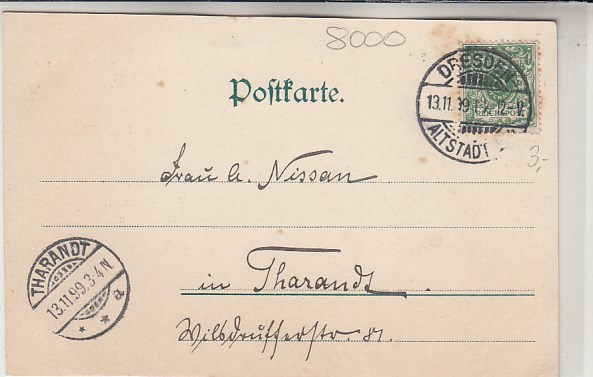 8000
Postkarte.
DRESDEN
13.11.99
ALTSTADT
REICHSPOST
3,-
Frau A. Nissan
in Tharandt
Wilsdrufferstr. 81.
THARANDT
13.11.99.3-4N
a